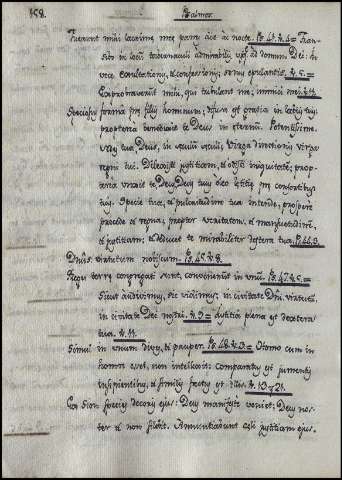 158. Psalmos.
Fuerunt mihi lacrimæ meæ panes die ac nocte. Ps. 41. v. 4 = Tran-
sibo in locũ tabernaculi admirabilis usqʒ ad domum Dei: in
voce exultationis, et confessionis; sonus epulantis. v. 5. =
Exprobraverunt mihi, qui tribulant me, inimici mei. v. 11.
Speciosus forma præ filijs hominum; diffusa est gratia in labijs tuis
propterea benedixit te Deus in æternũ. Potentissime.
Sedes tua, Deus, in seculũ seculi, Virga directionis virga
regni tui. Dilexisti justitiam, et odisti iniquitatẽ; prop-
terea unxit te, Deus, Deus tuus oleo lætitiæ præ consortibus
tuis. Specie tua, et pulcritudine tua intende, prospere
procede et regna, propter veritatem, et mansuetudinẽ,
et justitiam; et deducet te mirabiliter dextera tua. Ps. 44. 3.
Dñus virtutum nobiscum. Ps. 45. v. 8.
Reges terræ congregati sunt, convenerunt in unũ. Ps. 47. v. 5. =
Sicut audivimus, sic vidimus; in civitate Dñi virtutũ
in civitate Dei nostri. v. 9 = justitia plena est dextera
tua. v. 11.
Simul in unum dives, et pauper. Ps. 48. v. 3 = Homo cum in
honore esset, non intellexit: comparatus est jumentis
insipientibus, et similis factus est illis. v. 13 y 21.
Ex Sion species decoris ejus: Deus manifeste veniet: Deus nos-
ter et non silebit. Annuntiabunt cæli justitiam ejus.